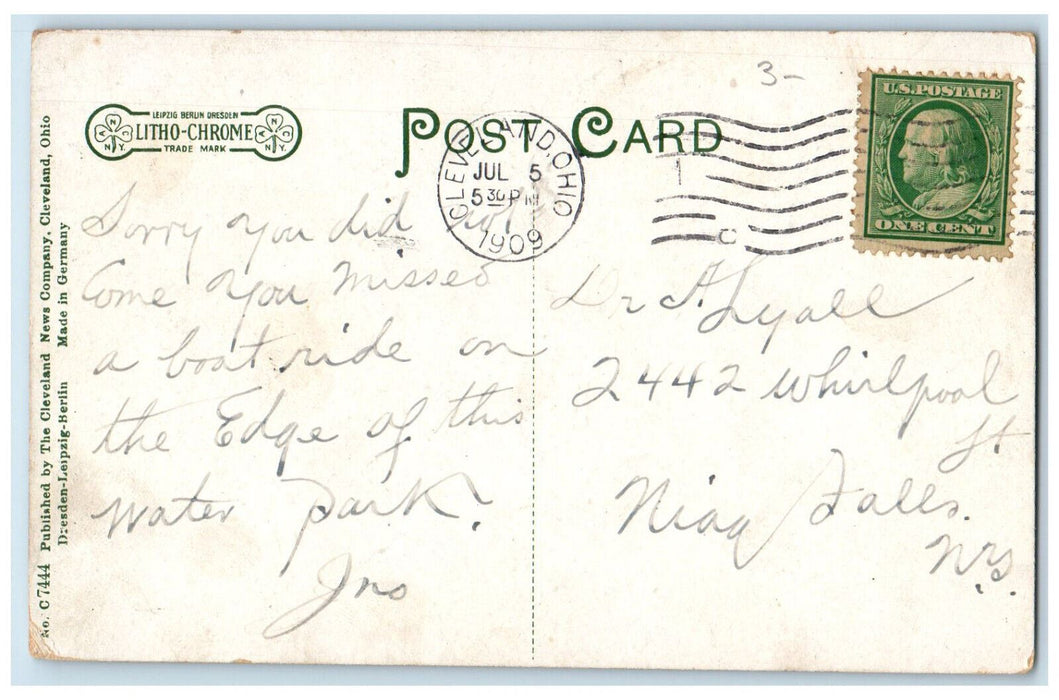 3-
LEIPZIG BERLIN DRESDEN
LITHO-CHROME
TRADE MARK
A N C N.Y.
A N C N.Y.
POST CARD
CLEVELAND, OHIO
JUL 5
5 30 PM
1909
1
C
U.S. POSTAGE
ONE CENT
No. C 7444 Published by The Cleveland News Company, Cleveland, Ohio
Dresden-Leipzig-Berlin Made in Germany
Sorry you did not
Come you missed
a boat ride on
the Edge of this
water park.
Jno
Dr A. Lyall
2442 Whirlpool
St
Niag Falls.
N.Y.